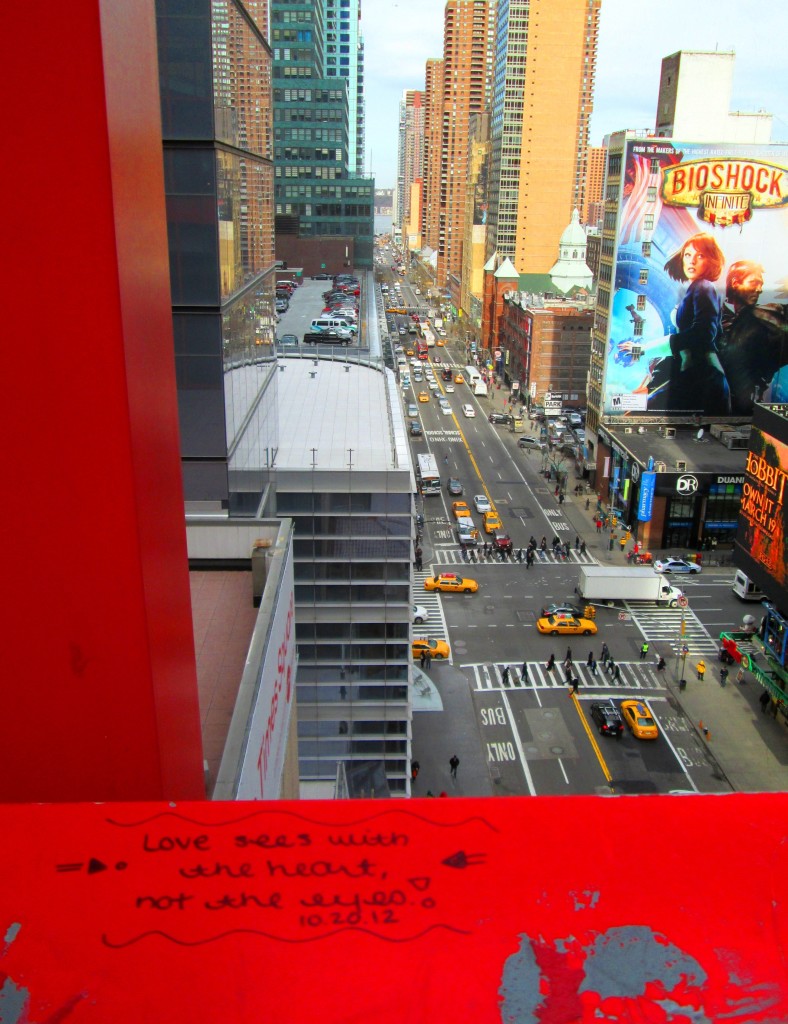 FROM THE MAKERS OF THE HIGHEST
BIOSHOCK
INFINITE
M
PARK
DR
DUANE
HOBBIT
OWN IT
MARCH 19
ONLY
BUS
BUS
ONLY
Love sees with
the heart,
not the eyes.
10.20.12